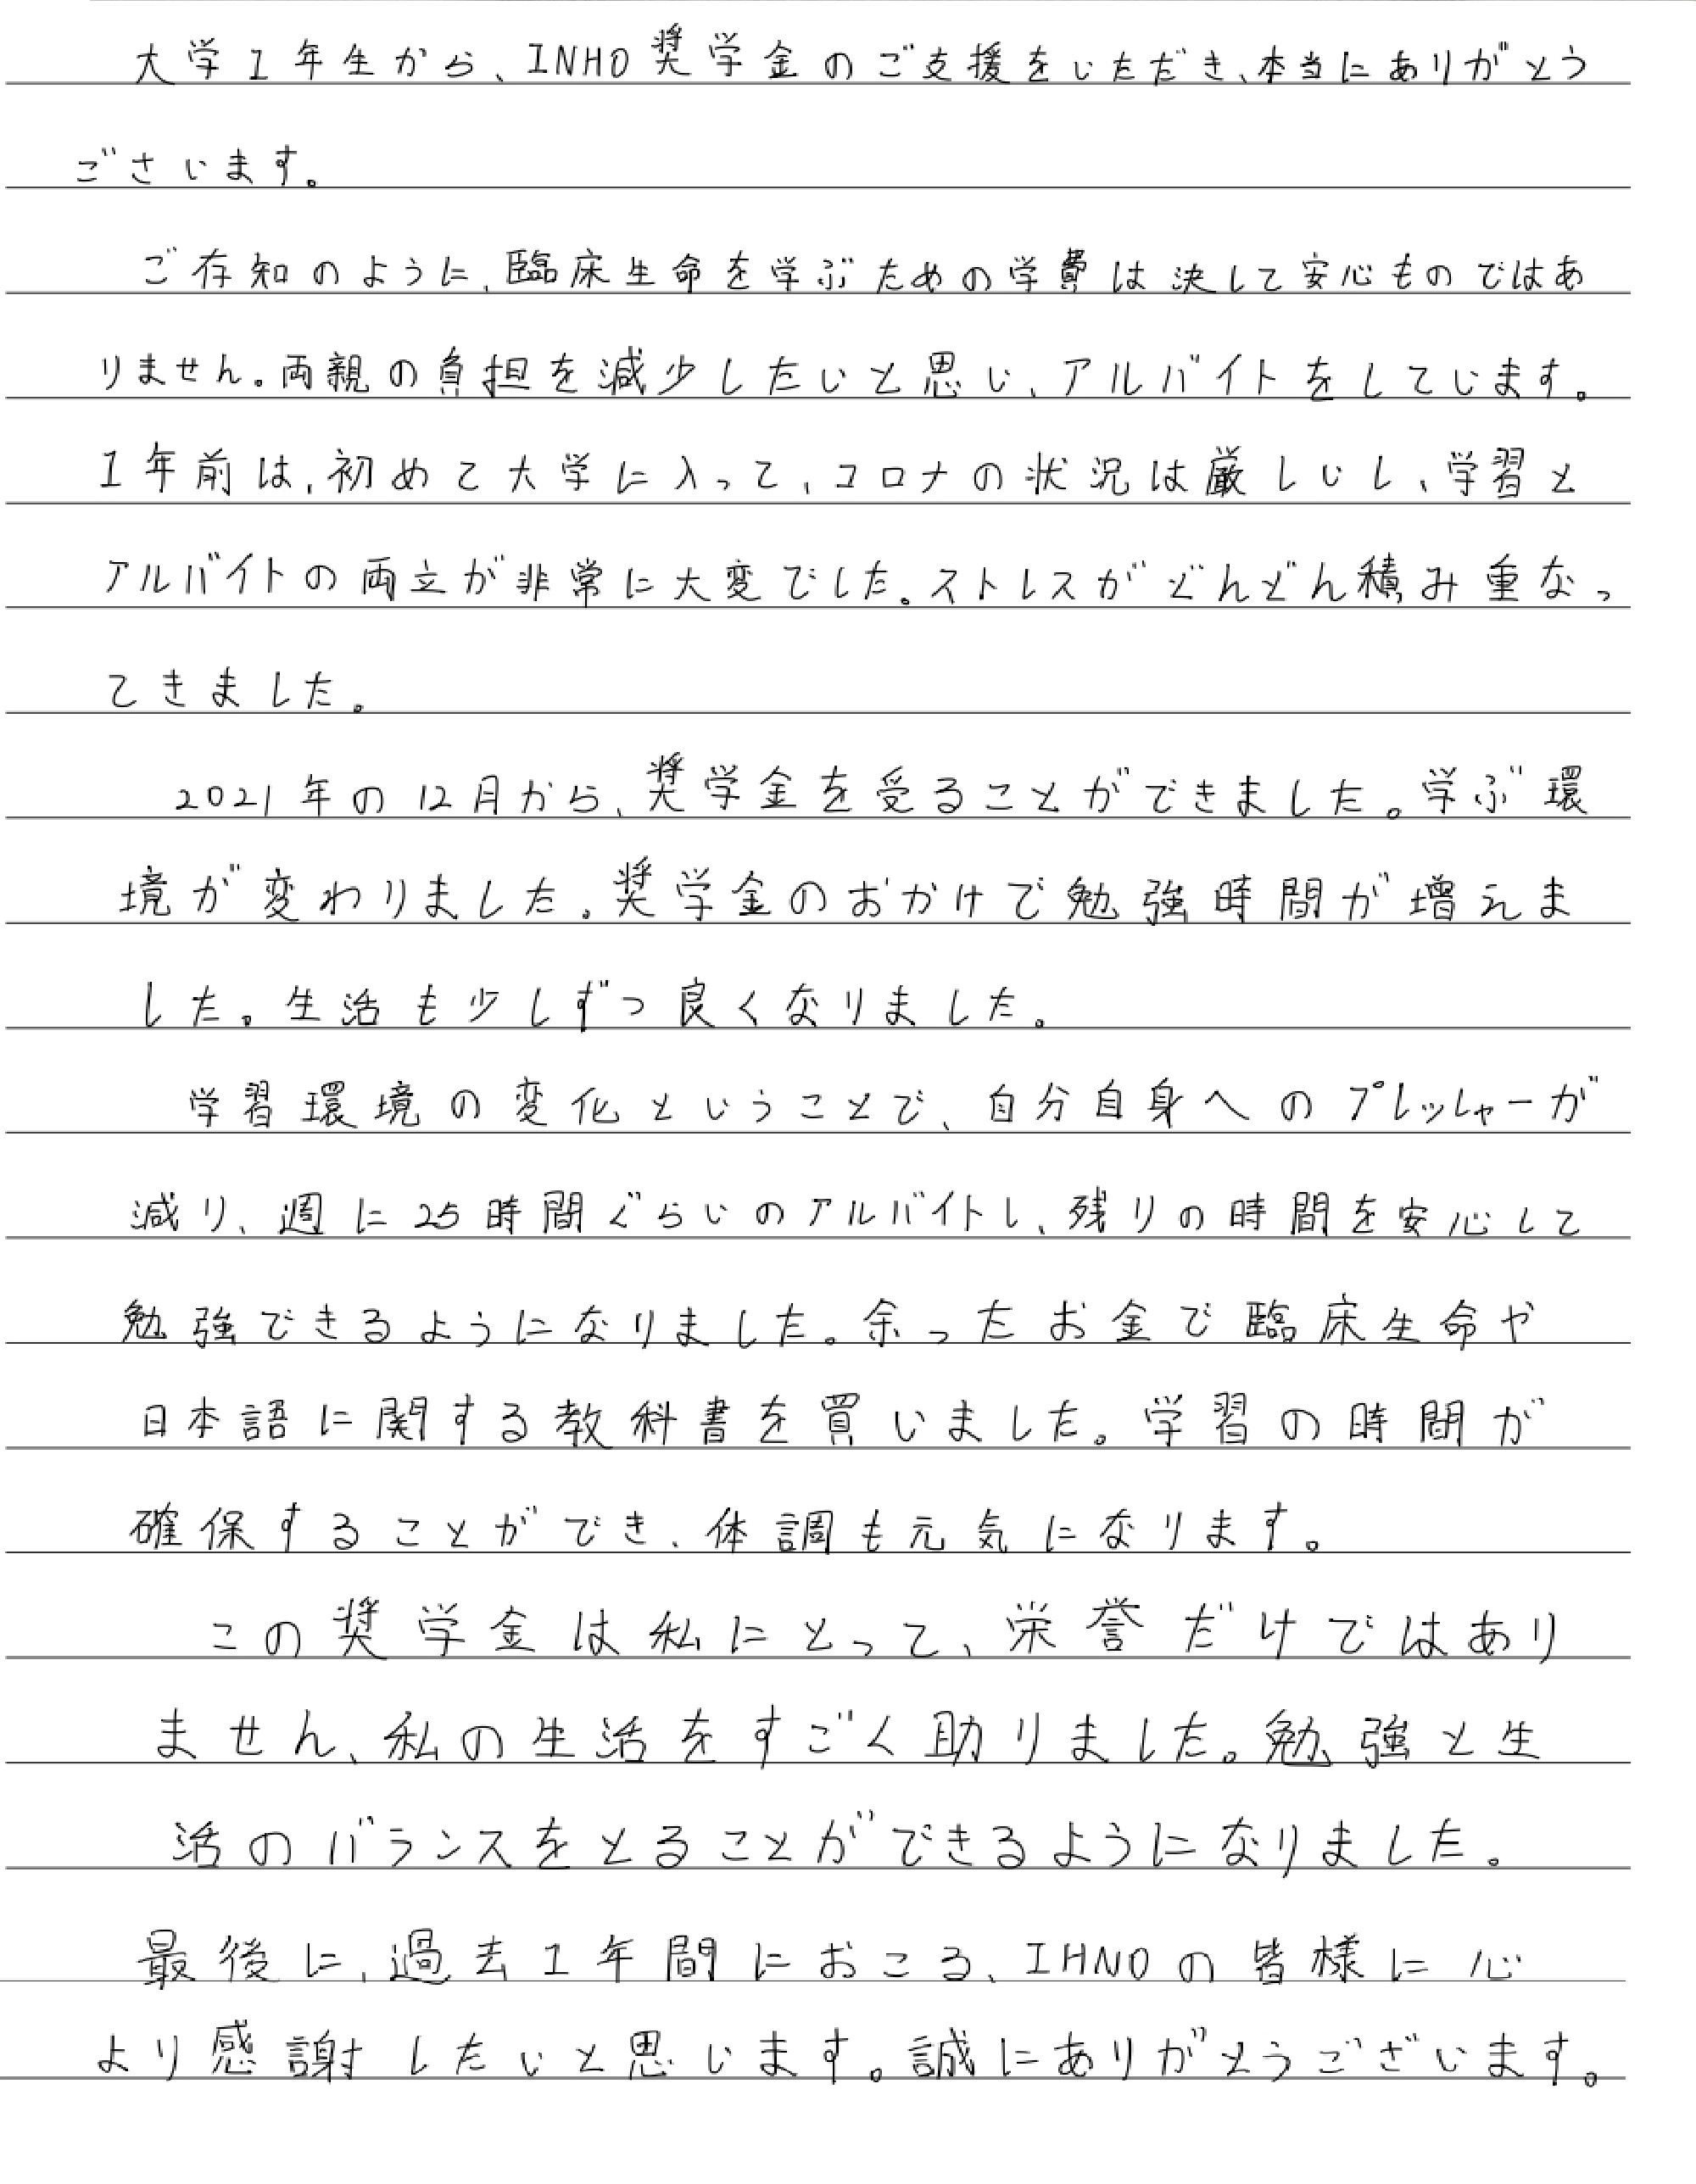 大学1年生から、INHO奨学金のご支援をいただき、本当にありがとう
ごさいます。
ご存知のように、臨床生命を学ぶための学費は決して安心ものではあ
りません。両親の負担を減少したいと思い、アルバイトをしています。
1年前は、初めて大学に入って、コロナの状況は厳しいし、学習と
アルバイトの両立が非常に大変でした。ストレスがどんどん積み重なっ
てきました。
2021年の12月から、奨学金を受ることができました。学ぶ環
境が変わりました。奨学金のおかけで勉強時間が増えま
した。生活も少しずつ良くなりました。
学習環境の変化ということで、自分自身へのプレッシャーが
減り、週に25時間ぐらいのアルバイトし、残りの時間を安心して
勉強できるようになりました。余ったお金で臨床生命や
日本語に関する教科書を買いました。学習の時間が
確保することができ、体調も元気になります。
この奨学金は私にとって、栄誉だけではあり
ません、私の生活をすごく助りました。勉強と生
活のバランスをとることができるようになりました。
最後に、過去1年間におこる、IHNOの皆様に心
より感謝したいと思います。誠にありがとうございます。